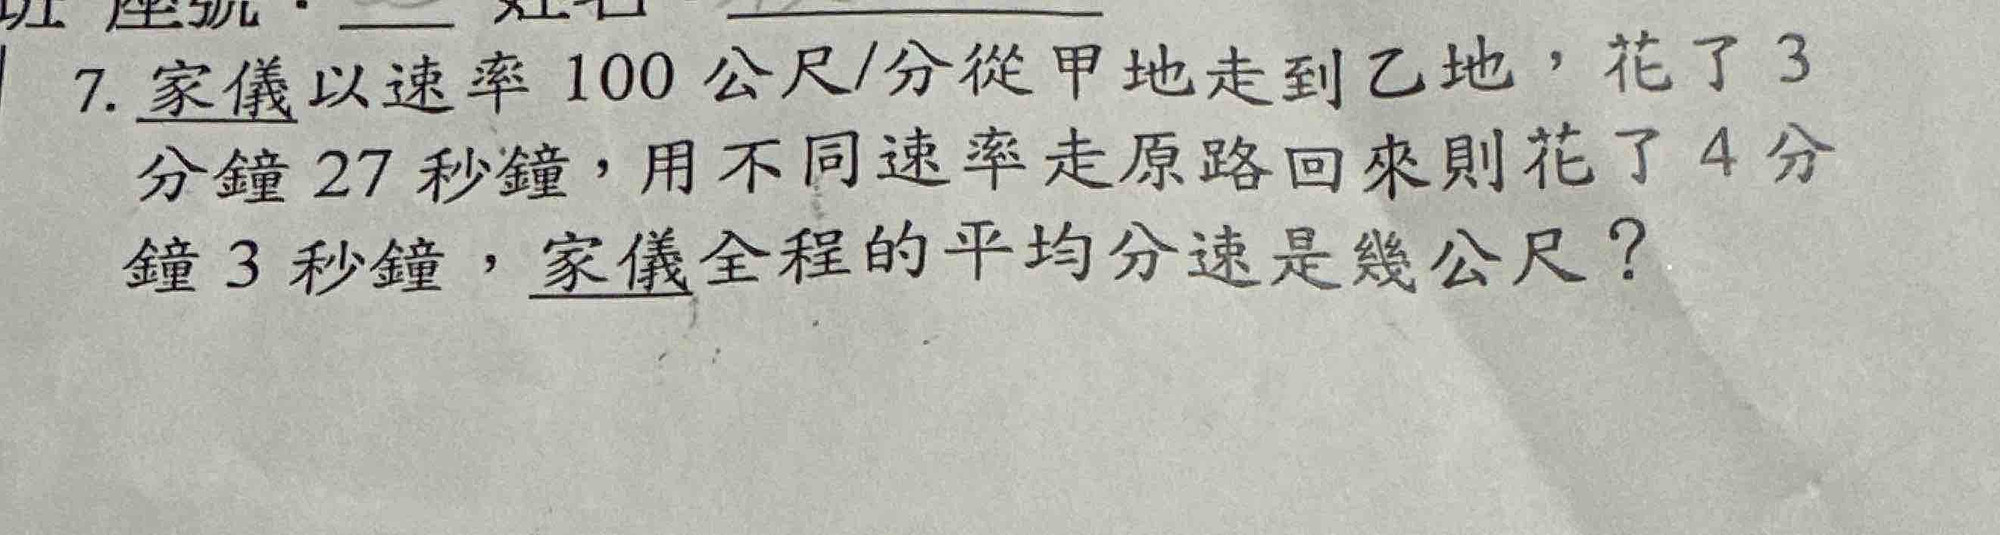 座號：
7. 家儀以速率 100 公尺/分從甲地走到乙地，花了 3
分鐘 27 秒鐘，用不同速率走原路回來則花了 4 分
鐘 3 秒鐘，家儀全程的平均分速是幾公尺？